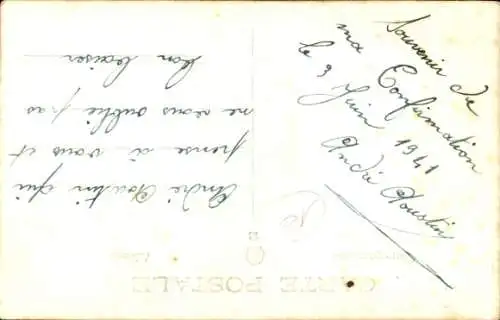 Souvenir de
ma Confirmation
le 9 Juin 1941
André Aoustin
André Aoustin qui
pense à vous et
ne vous oublie pas
bon baiser
CARTE POSTALE